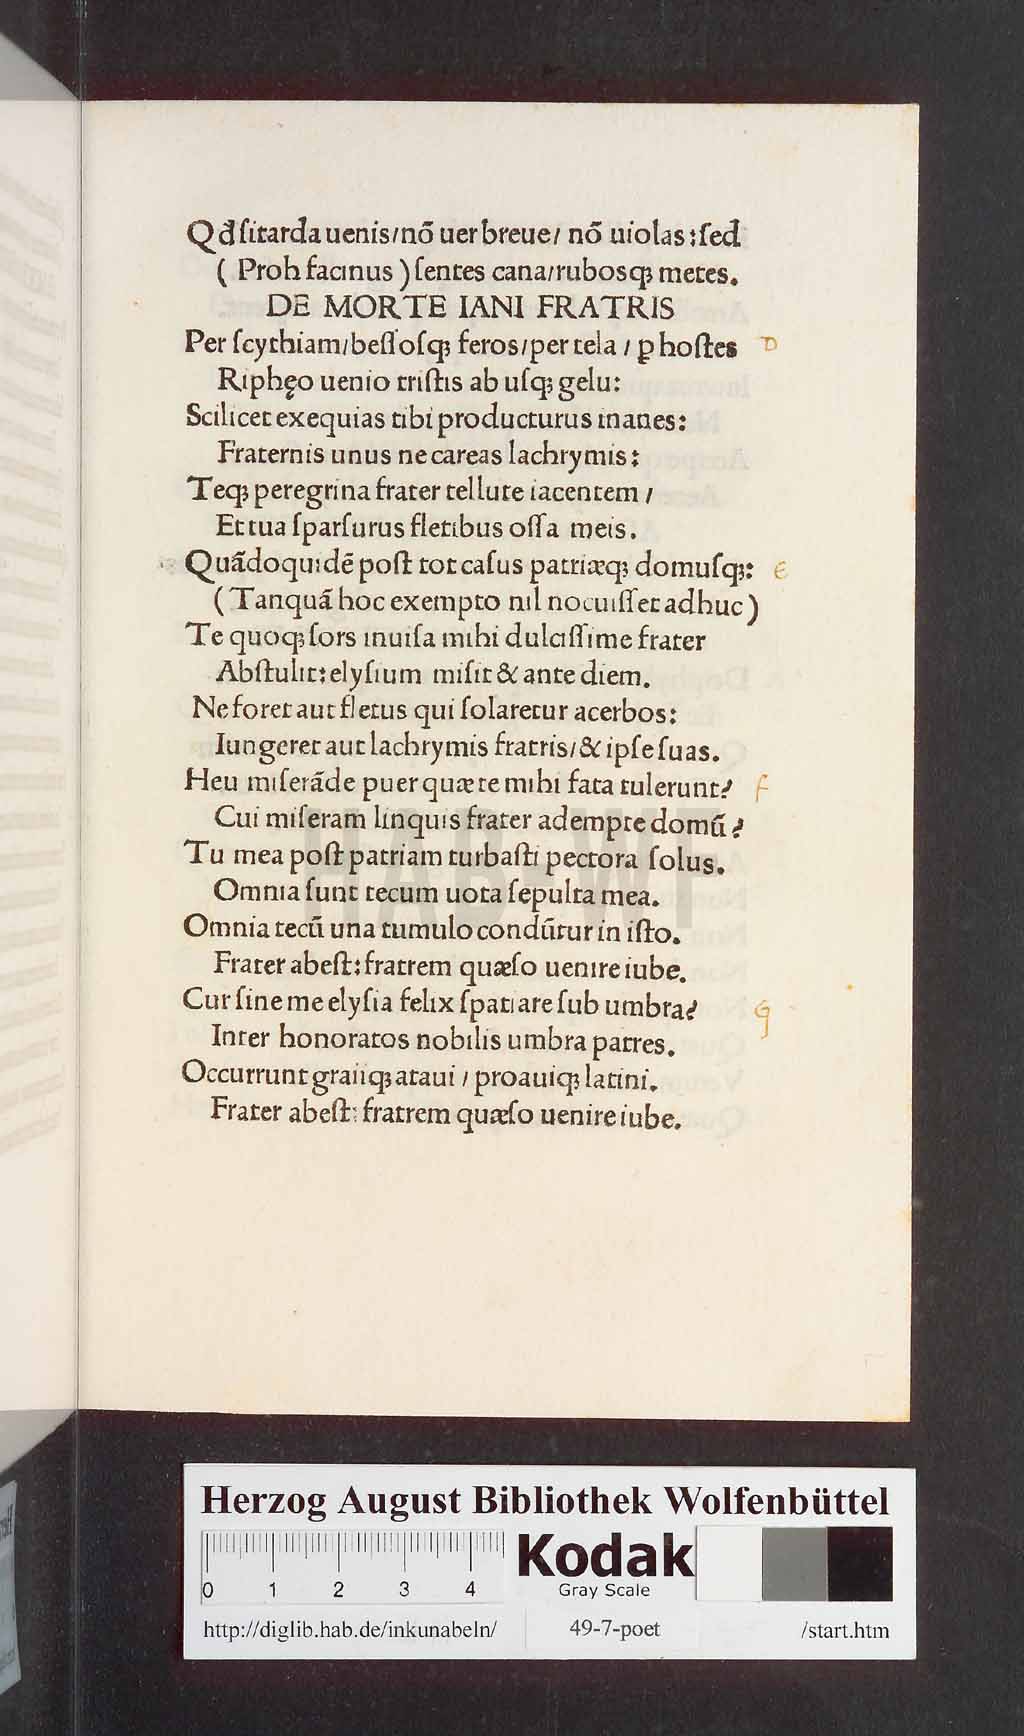 Qđ ſi tarda uenis/ nõ uer breue/ nõ uiolas: ſed
( Proh facinus ) ſentes cana/rubosqꝫ metes.
DE MORTE IANI FRATRIS
Per ſcythiam/beſſoſqꝫ feros/per tela / ꝑ hoſtes D
Riphęo uenio triſtis ab uſqꝫ gelu:
Scilicet exequias tibi producturus inanes:
Fraternis unus ne careas lachrymis:
Teqꝫ peregrina frater tellure iacentem /
Et tua ſparſurus fletibus oſſa meis.
Quãdoquidẽ poſt tot caſus patriæqꝫ domuſqꝫ: E
( Tanquã hoc exempto nil nocuiſſet adhuc )
Te quoqꝫ ſors inuiſa mihi dulciſſime frater
Abſtulit: elyſium miſit & ante diem.
Ne foret aut fletus qui ſolaretur acerbos:
Iungeret aut lachrymis fratris/& ipſe ſuas.
Heu miſerãde puer quæ te mihi fata tulerunt? f
Cui miſeram linquis frater adempte domũ?
Tu mea poſt patriam turbaſti pectora ſolus.
Omnia ſunt tecum uota ſepulta mea.
Omnia tecũ una tumulo condũtur in iſto.
Frater abeſt: fratrem quæſo uenire iube.
Cur ſine me elyſia felix ſpatiare ſub umbra? g
Inter honoratos nobilis umbra patres.
Occurrunt graiiqꝫ ataui / proauiqꝫ latini.
Frater abeſt: fratrem quæſo uenire iube.
HAB WF
Herzog August Bibliothek Wolfenbüttel
0 1 2 3 4
Kodak
Gray Scale
http://diglib.hab.de/inkunabeln/ 49-7-poet /start.htm